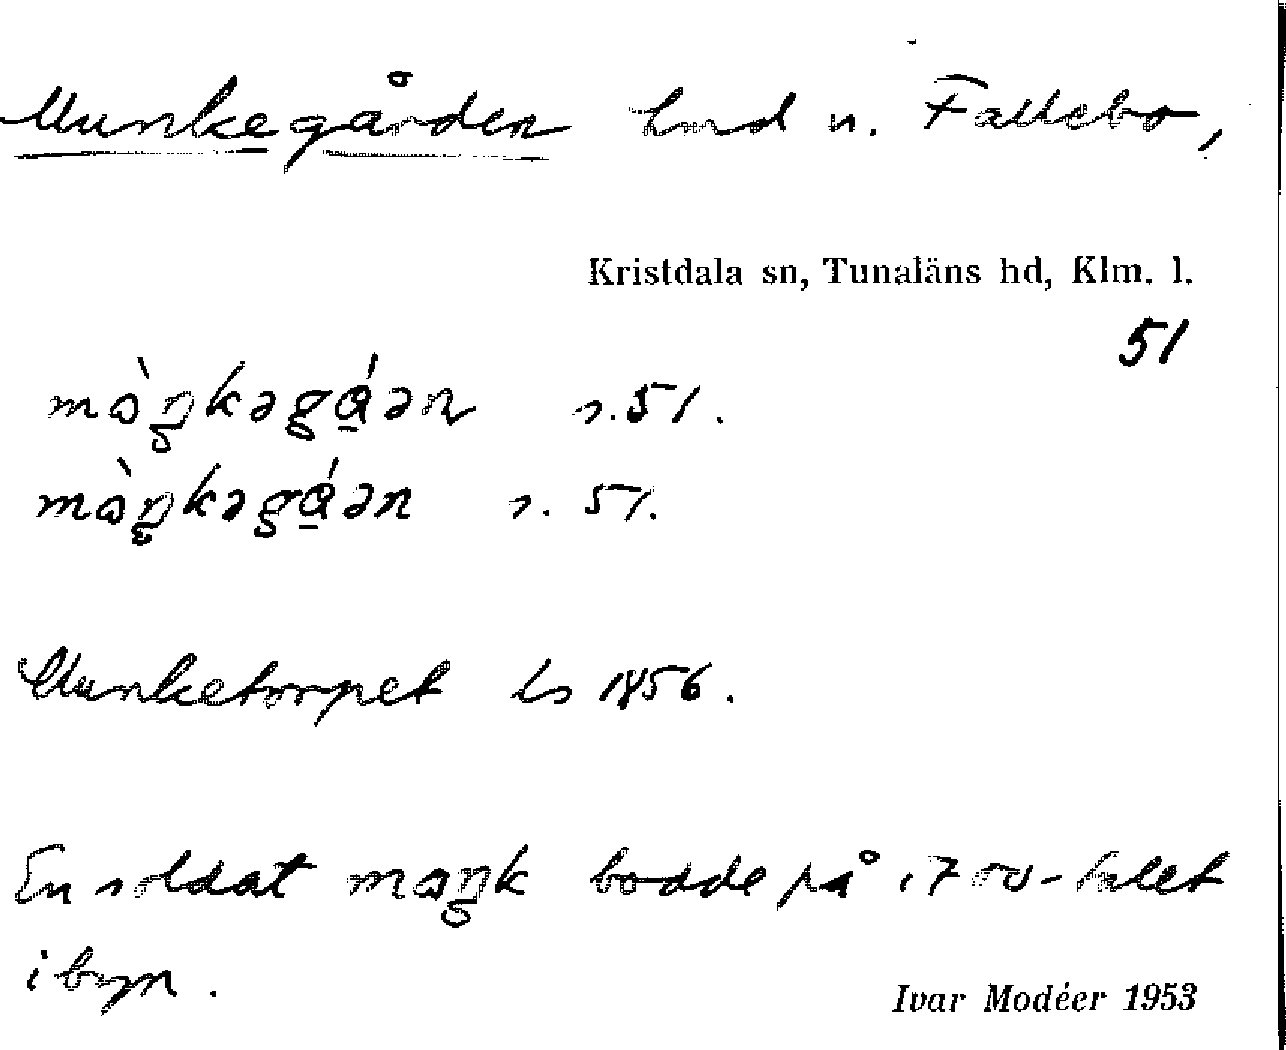 Munkegården lmd u. Fallebo,
Kristdala sn, Tunaläns hd, Klm. l.
51
màŋkəgɑ́ən s. 51.
màŋkəgɑ́ən s. 51.
Munketorpet Ls 1856.
En soldat maŋk bodde på 1700-talet
i byn.
Ivar Modéer 1953